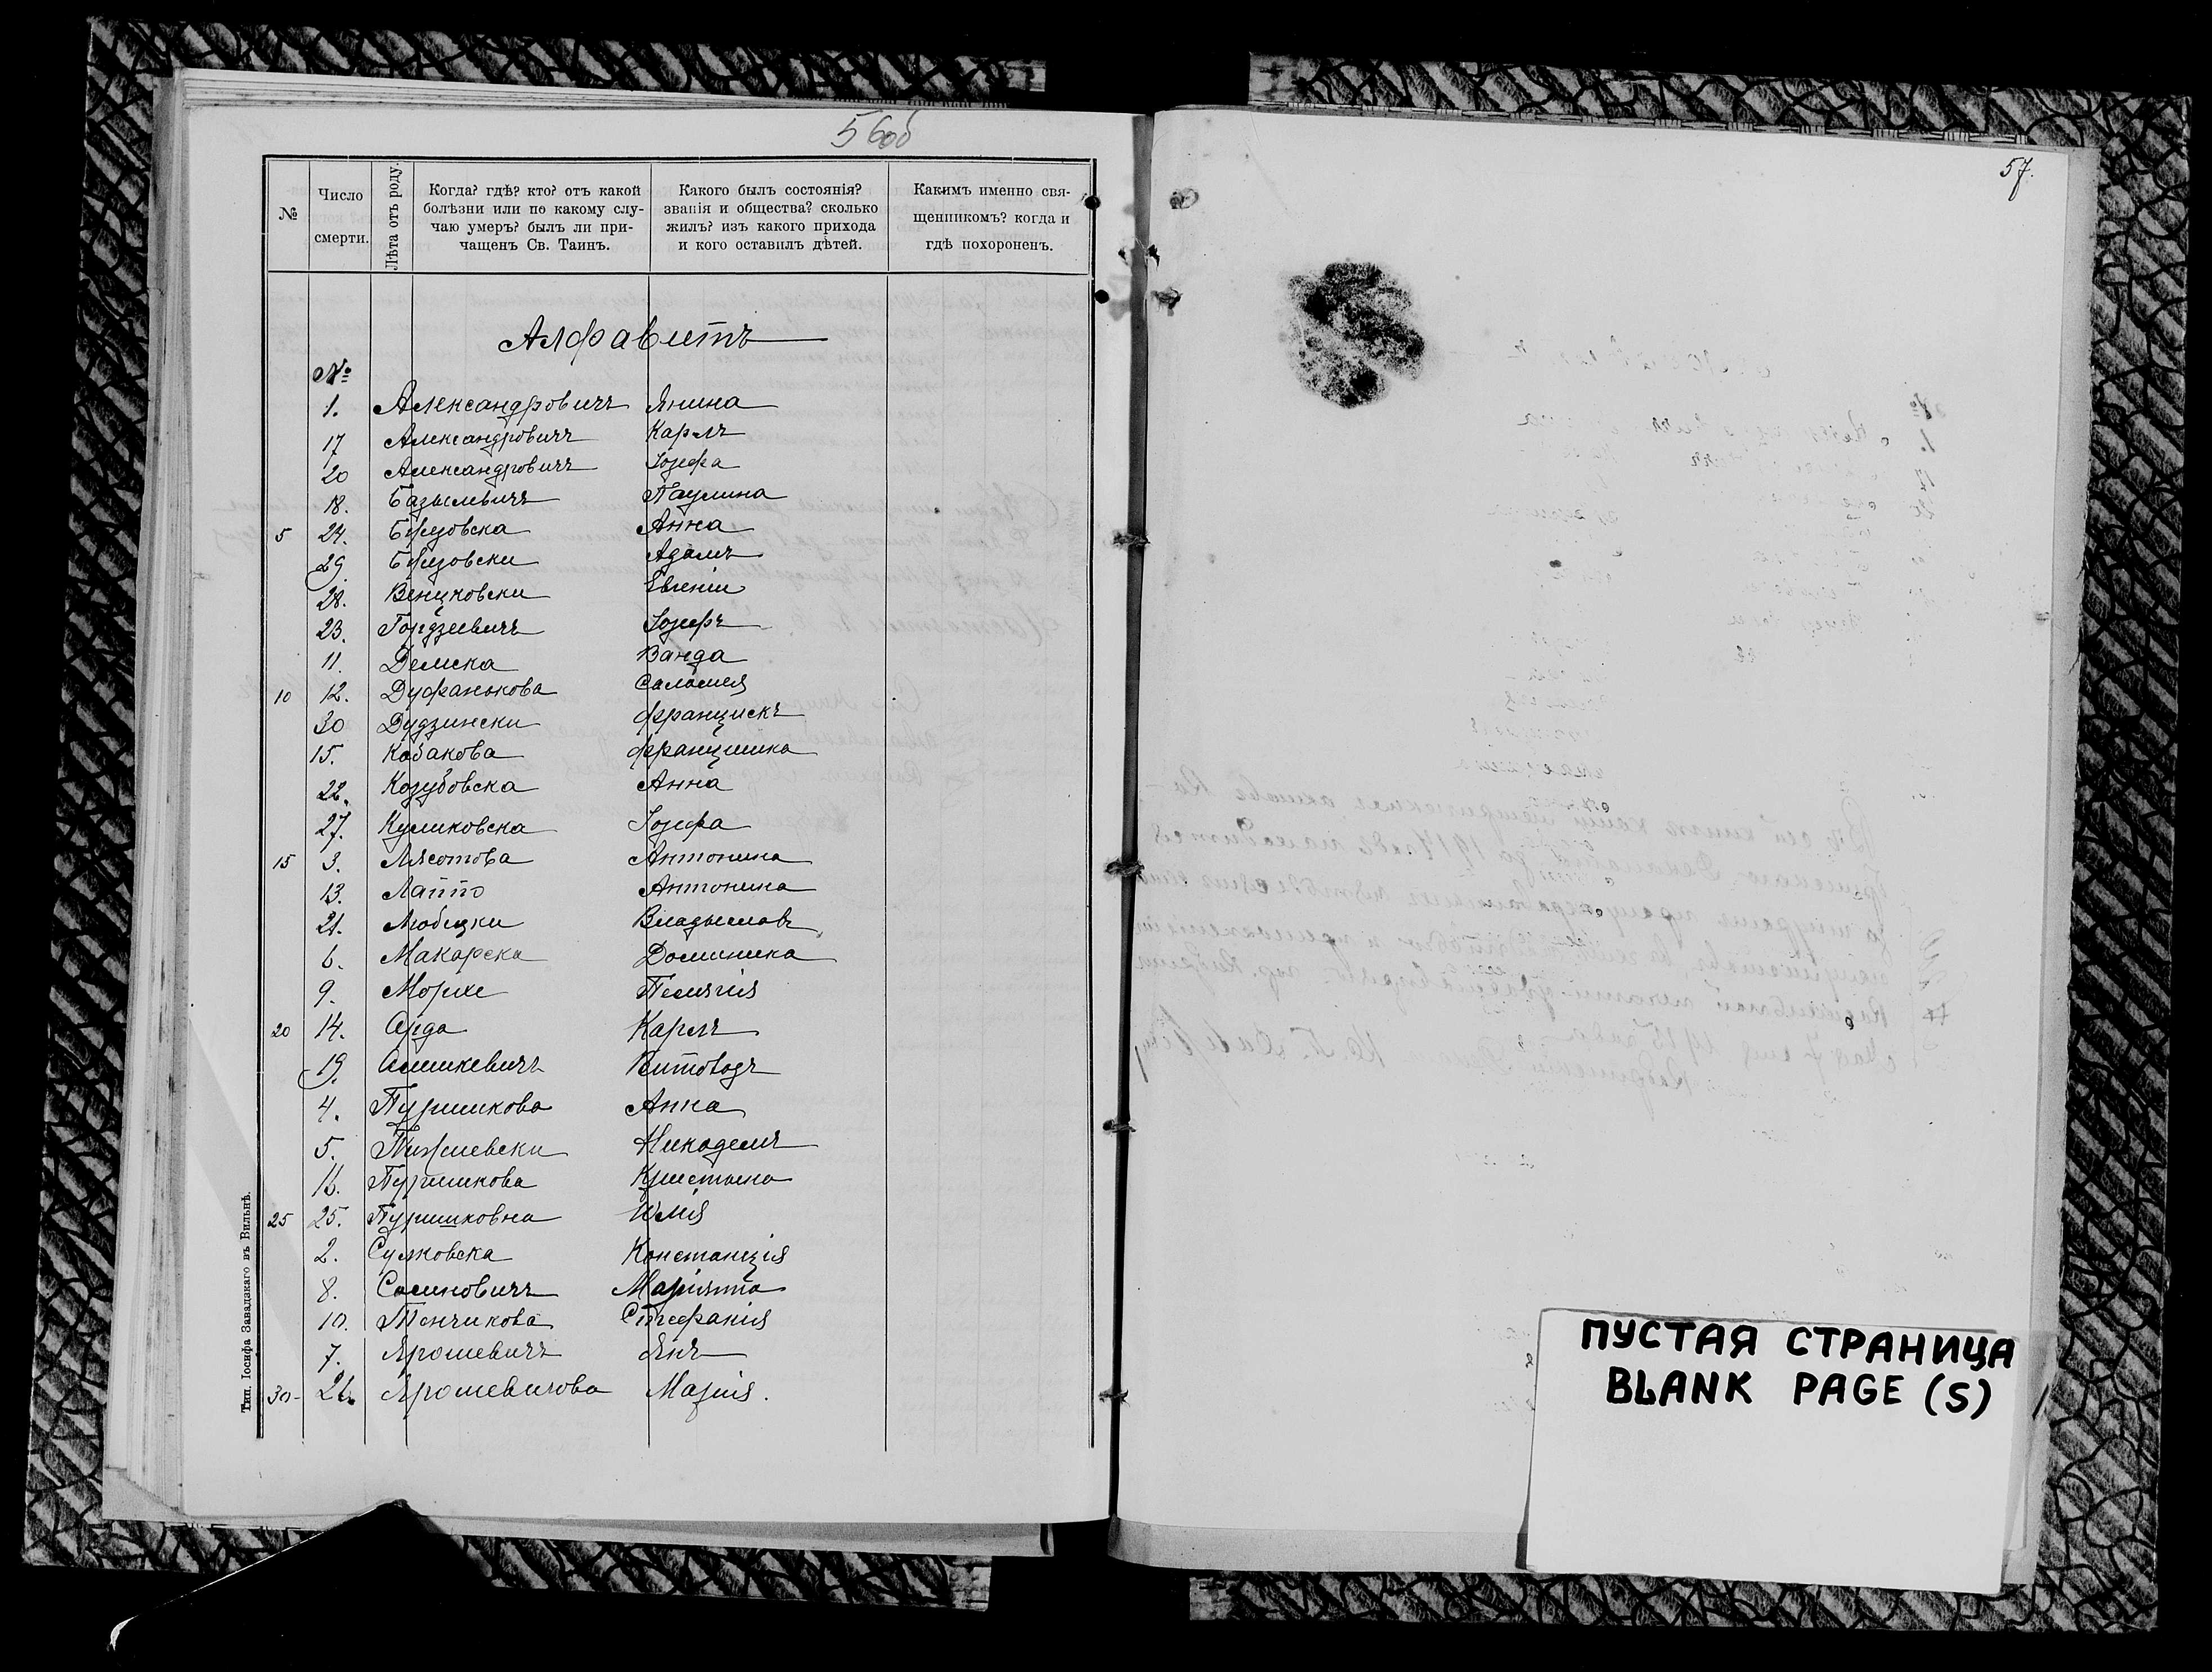 56об
№
Число смерти.
Лѣта отъ роду.
Когда? гдѣ? кто? отъ какой
болѣзни или по какому слу-
чаю умеръ? былъ ли при-
чащенъ Св. Таинъ.
Какого былъ состоянія?
званія и общества? сколько
жилъ? изъ какого прихода
и кого оставилъ дѣтей.
Какимъ именно свя-
щенникомъ? когда и
гдѣ похороненъ.
Алфавитъ
№
1. Александровичъ Янина
17 Александровичъ Карлъ
20 Александровичъ Іозефа
18. Базылевичъ Паулина
5 24. Бржозовска Анна
29 Бржозовски Адамъ
28. Венцковски Евгеніи
23. Гордзеевичъ Іозефъ
11. Демска Ванда
10 12. Дуфанькова Саломея
30 Дудзински Францискъ
15. Кобакова Францишка
22. Козубовска Анна
27. Куликовска Іозефа
15 3. Лясотова Антонина
13. Лапто Антонина
21. Любецки Владыславъ
6. Макарска Доминика
9.Морже Пелягія
20 14. Орда Карлъ
19. Олешкевичъ Витовдъ
4. Пуришкова Анна
5. Никодемъ
16. Пуришкова Кристына
25 25. Пуришковна Юлія
2. Сулковска Констанція
8. Саминовичъ Маріянна
10. Тончикова Стефанія
7. Ярошевичъ Янъ
30 26. Ярошевичова Марія.
Тип. Іосифа Завадзкаго въ Вильнѣ.
57.
ПУСТАЯ СТРАНИЦА
BLANK PAGE (S)